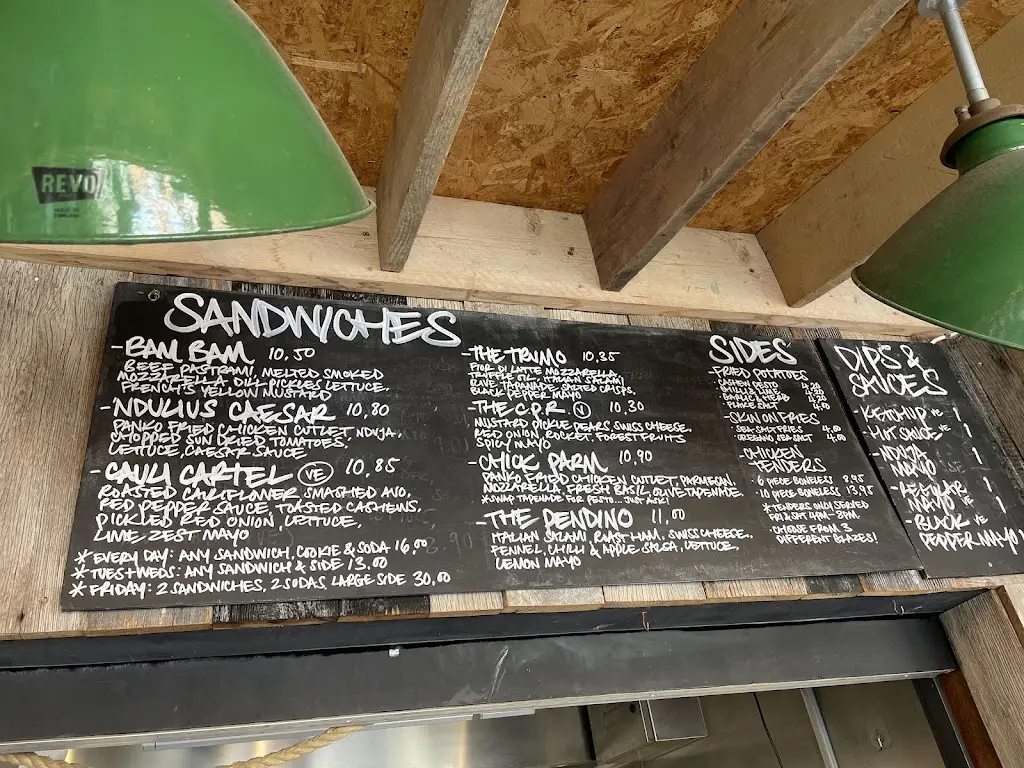 REVO
SANDWICHES
-BAM BAM 10.50
BEEF PASTRAMI, MELTED SMOKED
MOZZARELLA, DILL PICKLES, LETTUCE,
FRENCH'S YELLOW MUSTARD
-NDULIUS CAESAR 10,80
PANKO FRIED CHICKEN CUTLET, NDUJA,
CHOPPED SUN DRIED TOMATOES,
LETTUCE, CAESAR SAUCE
-CAULI CARTEL VE 10,85
ROASTED CAULIFLOWER SMASHED AVO,
RED PEPPER SAUCE, TOASTED CASHEWS,
PICKLED RED ONION, LETTUCE,
LIME ZEST MAYO
* EVERY DAY: ANY SANDWICH, COOKIE & SODA 16,00
* TUES+WEDS: ANY SANDWICH & SIDE 13.00
* FRIDAY: 2 SANDWICHES, 2 SODAS, LARGE SIDE 30,00
-THE TRIMO 10,35
FIOR DI LATTE MOZZARELLA,
TRUFFLE OIL, ITALIAN SALAMI,
OLIVE TAPANADE, SALTED CRISPS,
BLACK PEPPER MAYO
-THE C.P.R V 10,30
MUSTARD PICKLE PEARS, SWISS CHEESE,
RED ONION, ROCKET, FOREST FRUITS
MAYO
-CHICK PARM 10,90
PANKO FRIED CHICKEN CUTLET, PARMESAN,
MOZZARELLA, FRESH BASIL, OLIVE TAPENADE.
*SWAP TAPENADE FOR PESTO... JUST ASK!
-THE PENDINO 11,00
ITALIAN SALAMI, ROAST HAM, SWISS CHEESE,
FENNEL, CHILLI & APPLE SALSA, LETTUCE,
LEMON MAYO
SIDES
-FRIED POTATOES
CASHEW PESTO 4.20
CHILLI & LIME 4.20
GARLIC & HERB 4.20
FLAKE SALT 4.00
-SKIN ON FRIES
· SEA SALT FRIES 4,00
· OREGANO SEA SALT 4.00
-CHICKEN
TENDERS
· 6 PIECE BONELESS 8.95
· 10 PIECE BONELESS 13.95
* TENDERS ONLY SERVED
FRI, SAT 12PM-8PM
· CHOOSE FROM 3
DIFFERENT GLAZES!
DIPS &
SAUCES
-KETCHUP VE 1
-HOT SAUCE VE 1
-NDUJA
MAYO 1
-REGULAR
MAYO VE 1
-BLACK VE
PEPPER MAYO 1